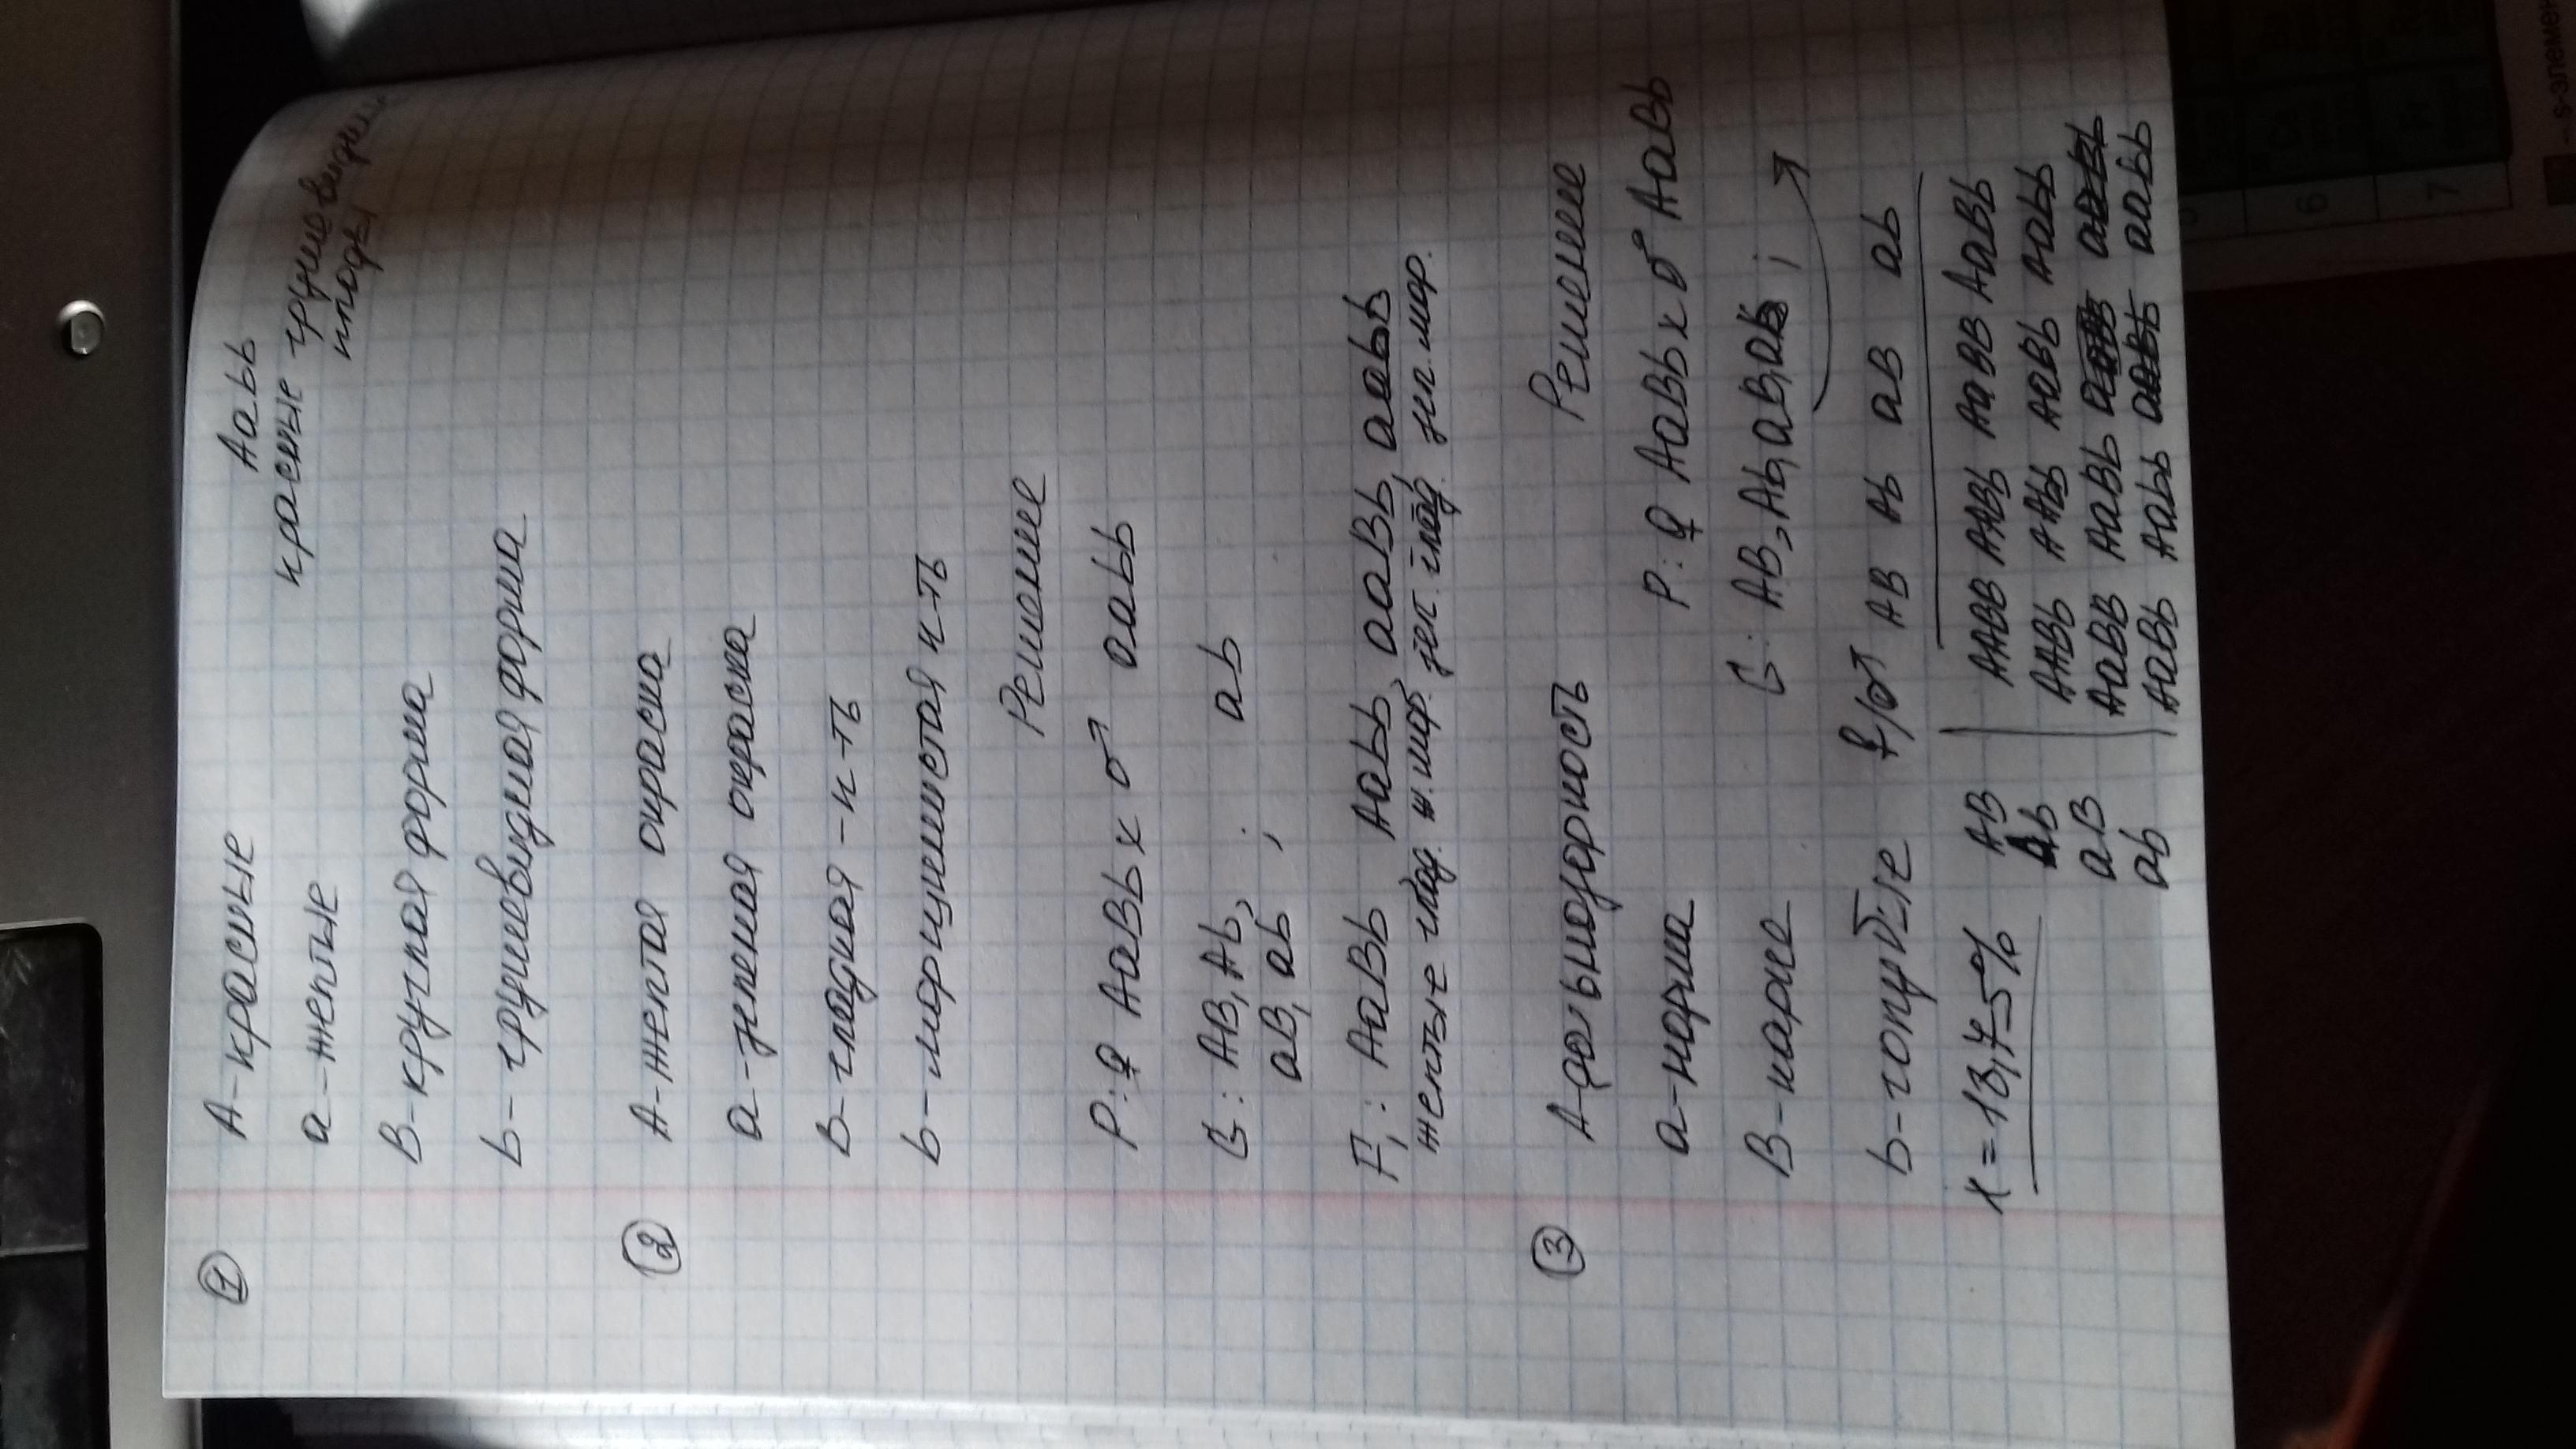 ① А-красные Аabb
а-желтые красные грушевидные
плоды
В-круглая форма
b-грушевидная форма
② А-желтая окраска
а-зеленая окраска
В-гладкая п-ть
b-морщинистая п-ть
Решение
P: ♀ AaBb x ♂ aabb
G: AB, Ab, ; ab
aB, ab
F₁: AaBb Aabb, aaBb, aabb
желтые глад. ж. мор. зел. глад. зел. мор.
③ А-дальнозоркость Решение
а-норма P: ♀ AaBb x ♂ AaBb
В-карие G: AB, Ab, aB, ab ;
b-голубые ♀/♂ AB Ab aB ab
x = 18,75% AB AABB AABb AaBB AaBb
Ab AABb AAbb AaBb Aabb
aB AaBB AaBb aaBB aaBb
ab AaBb Aabb aaBb aabb
- s-элемен
6
7